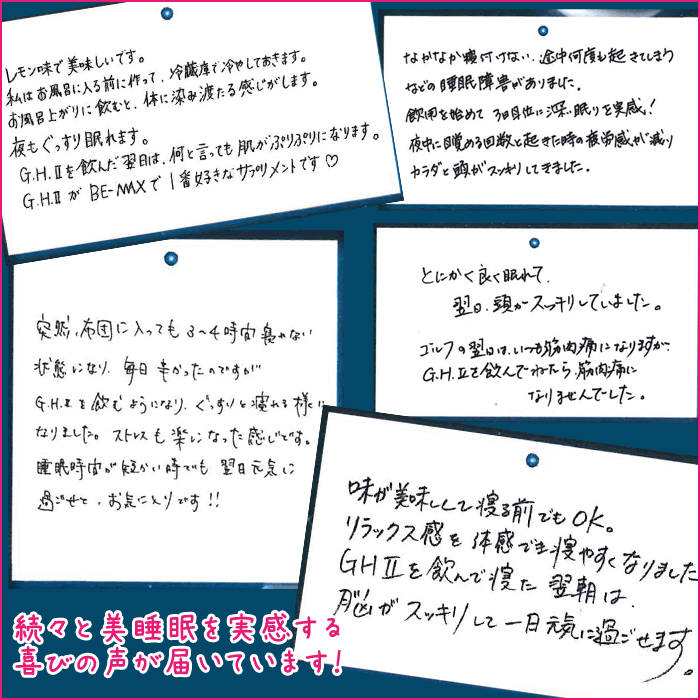 レモン味で美味しいです。
私はお風呂に入る前に作って、冷蔵庫で冷やしておきます。
お風呂上がりに飲むと、体に染み渡たる感じがします。
夜もぐっすり眠れます。
G.H.Ⅱを飲んだ翌日は、何と言っても肌がぷりぷりになります。
G.H.Ⅱが BE-MAXで1番好きなサプリメントです♡
なかなか寝付けない、途中何度も起きてしまう
などの睡眠障害がありました。
飲用を始めて 3日目位に深い眠りを実感!
夜中に目覚める回数と起きた時の疲労感が減り
カラダと頭がスッキリしてきました。
突然、布団に入っても3〜4時間寝れない
状態になり、毎日辛かったのですが
G.H.Ⅱを飲むようになり、ぐっすりと寝れる様に
なりました。ストレスも楽になった感じです。
睡眠時間が短かい時でも 翌日元気に
過ごせて、お気に入りです!!
とにかく良く眠れて、
翌日、頭がスッキリしていました。
ゴルフの翌日は、いつも筋肉痛になりますが、
G.H.Ⅱを飲んでねたら、筋肉痛に
なりませんでした。
味が美味しくて寝る前でもOK。
リラックス感を体感でき寝やすくなりました
GHⅡを飲んで寝た翌朝は、
脳がスッキリして一日元気に過ごせます。
続々と美睡眠を実感する
喜びの声が届いています!